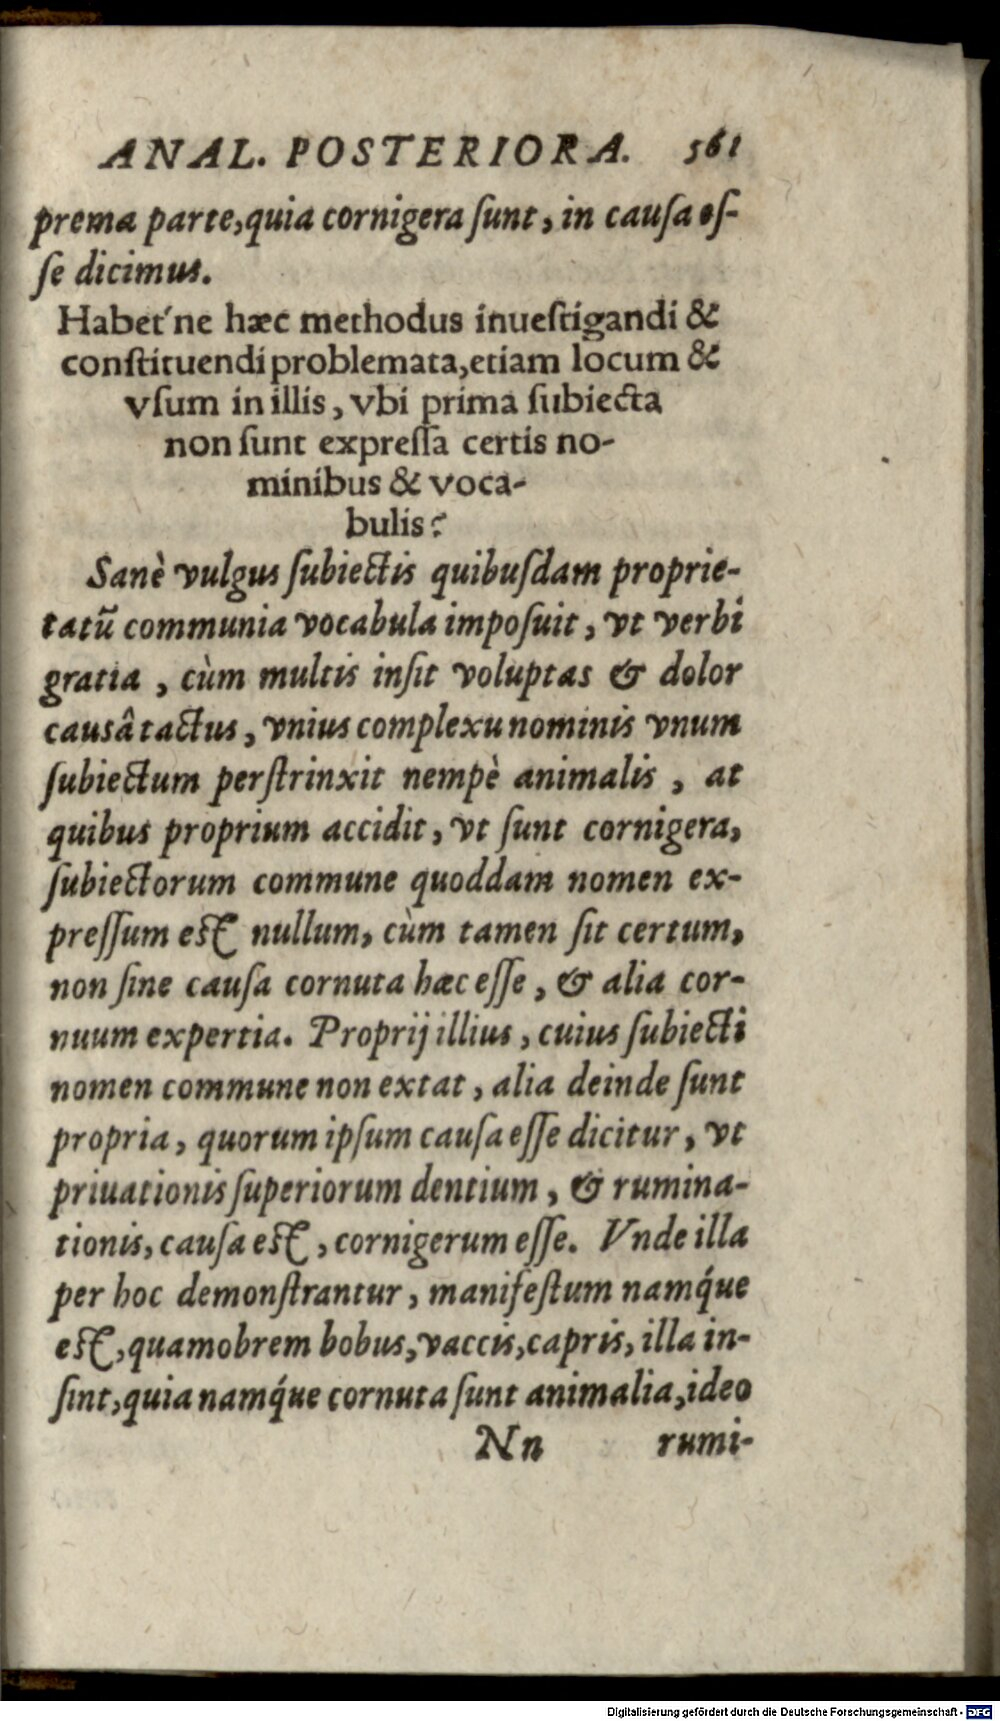 ANAL. POSTERIORA. 561
prema parte, quia cornigera ſunt, in cauſa eſ-
ſe dicimus.
Habet'ne hæc methodus inueſtigandi &
conſtituendi problemata, etiam locum &
vſum in illis, vbi prima ſubiecta
non ſunt expreſſa certis no-
minibus & voca-
bulis?
Sanè vulgus ſubiectis quibuſdam proprie-
tatũ communia vocabula impoſuit, vt verbi
gratia, cùm multis inſit voluptas & dolor
causâ tactus, vnius complexu nominis vnum
ſubiectum perſtrinxit nempè animalis, at
quibus proprium accidit, vt ſunt cornigera,
ſubiectorum commune quoddam nomen ex-
preſſum eſt nullum, cùm tamen ſit certum,
non ſine cauſa cornuta hæc eſſe, & alia cor-
nuum expertia. Proprij illius, cuius ſubiecti
nomen commune non extat, alia deinde ſunt
propria, quorum ipſum cauſa eſſe dicitur, vt
priuationis ſuperiorum dentium, & rumina-
tionis, cauſa eſt, cornigerum eſſe. Vnde illa
per hoc demonſtrantur, manifeſtum namq́ue
eſt, quamobrem bobus, vaccis, capris, illa in-
ſint, quia namq́ue cornuta ſunt animalia, ideo
Nn rumi-
Digitalisierung gefördert durch die Deutsche Forschungsgemeinschaft - DFG